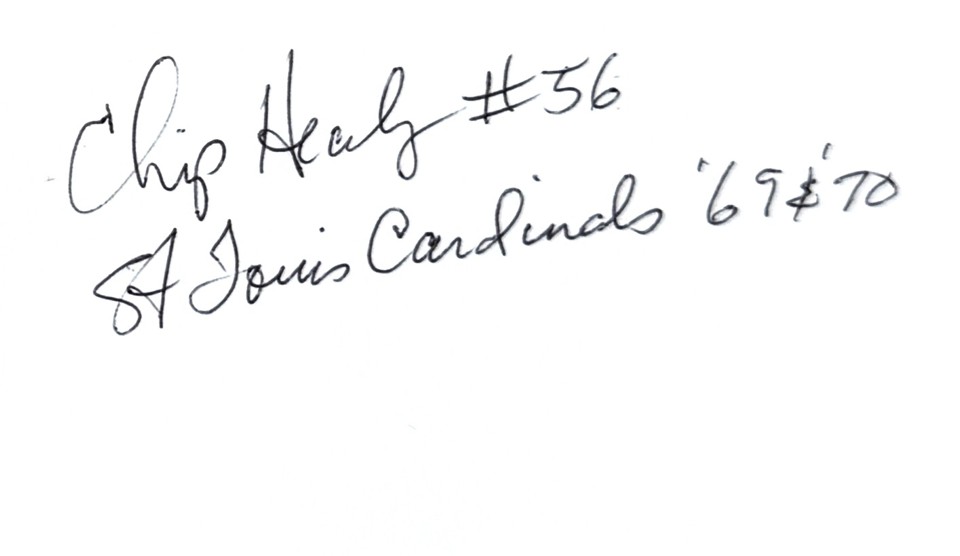 Chip Healy #56
St Louis Cardinals '69 & '70